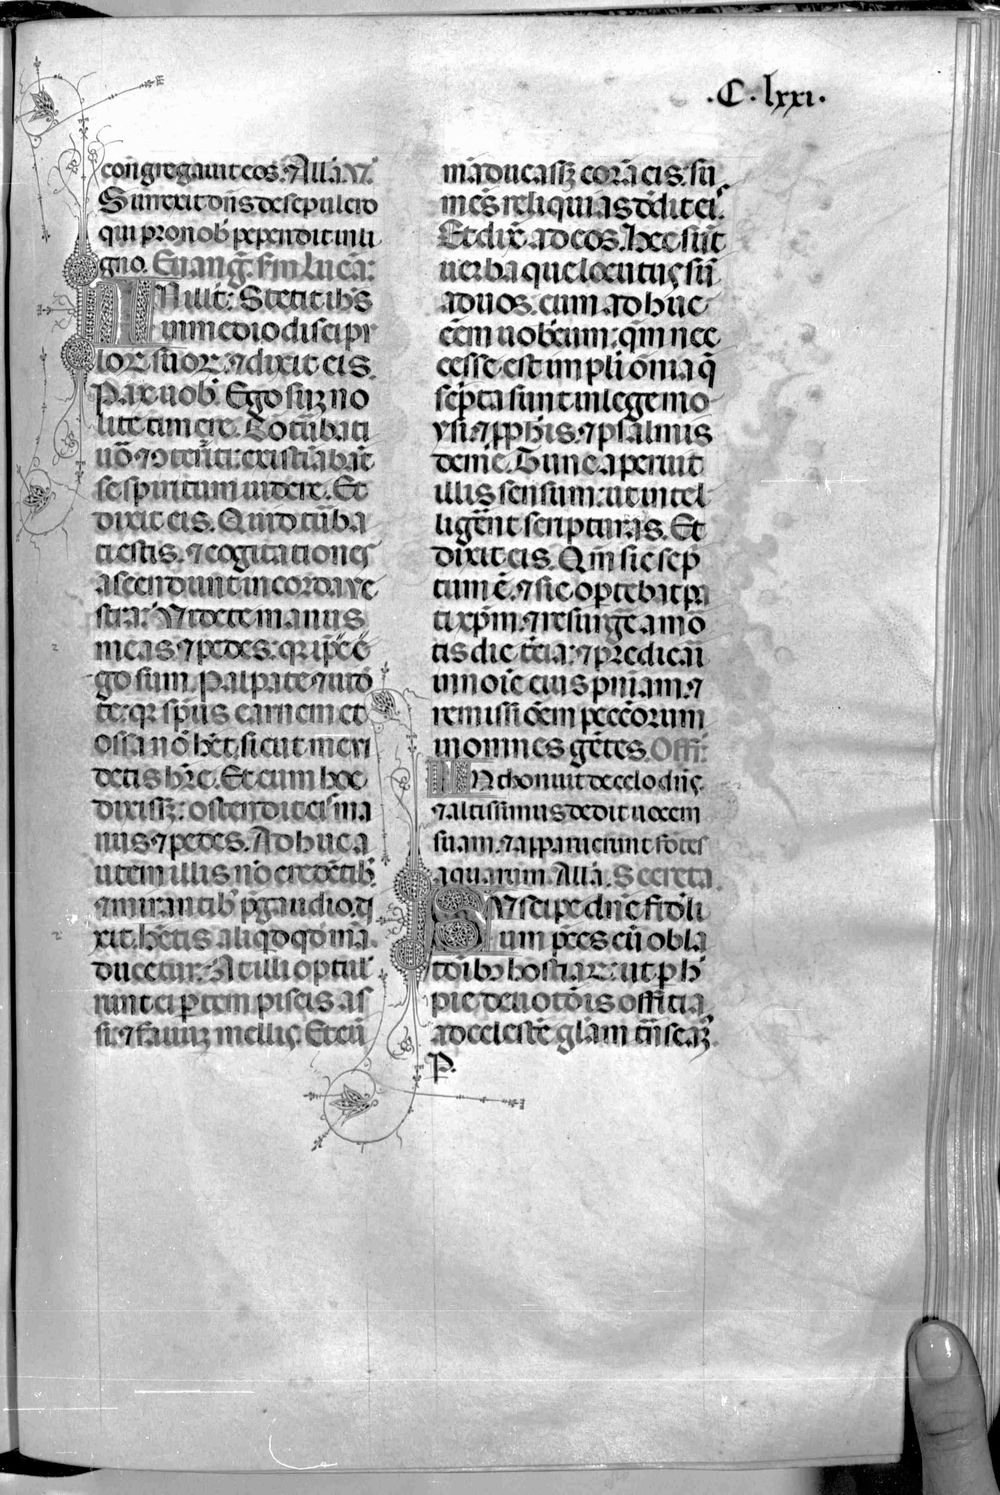 .C.lxxi.
congregauit eos. Alla. V.
Surrexit dñs de sepulcro
qui pro nob pependit in li
gno. Euang. scdm Lucã:
IN ill t: Stetit ihs
in medio discipu
lor suor: ⁊ dixit eis.
Pax uob. Ego sum no
lite timere. Cõturbati
uõ ⁊ ↄterriti: existiabãt
se spiritum uidere. Et
dixit eis. Quid turba
ti estis. ⁊ cogitationes
ascendunt in corda ve
stra: Videte manus
meas ⁊ pedes: qr ipe e
go sum. Palpate ⁊ uide
te: qr spus carnem et
ossa nõ hẽt. sicut me vi
detis hre. Et cum hoc
dixissz: ostendit eis ma
nus ⁊ pedes. Adhuc a
utem illis nõ credẽtib
⁊ mirantib p gaudio. di
xit. hẽtis aliqd qd mã
ducetur: At illi optul
runt ei ptem piscis as
si: ⁊ fauuz mellis. Et cũ
mãducassz corã eis. su
mẽs reliquias dẽdit ei.
Et dix ad eos. Hec sũt
uerba que locutus sũ
ad uos. cum adhuc
eẽm uobcum: qm nec
cesse est impli omia q
scpta sunt in lege mo
ysi. ⁊ pphis. ⁊ psalmis
de me. Tunc aperuit
illis sensum: ut intel
ligẽnt scripturas. Et
dixit eis. Qm sic scrip
tum ẽ. ⁊ sic optebat pa
ti xpm. ⁊ resurgẽ a mo
tis die tcia: ⁊ predicari
in noie eius pniam. ⁊
remissioem peccõrum
in omnes gẽtes. Offr:
Intonuit de celo dñs.
⁊ altissimus dedit uocem
suam. ⁊ apparuerunt fõtes
aquarum. Alla. Secreta.
Suscipe dñe fideli
um pces cũ obla
toibz hostiar: ut p h
pie deuotois officia.
ad celestẽ gliam trãseaz.
P.